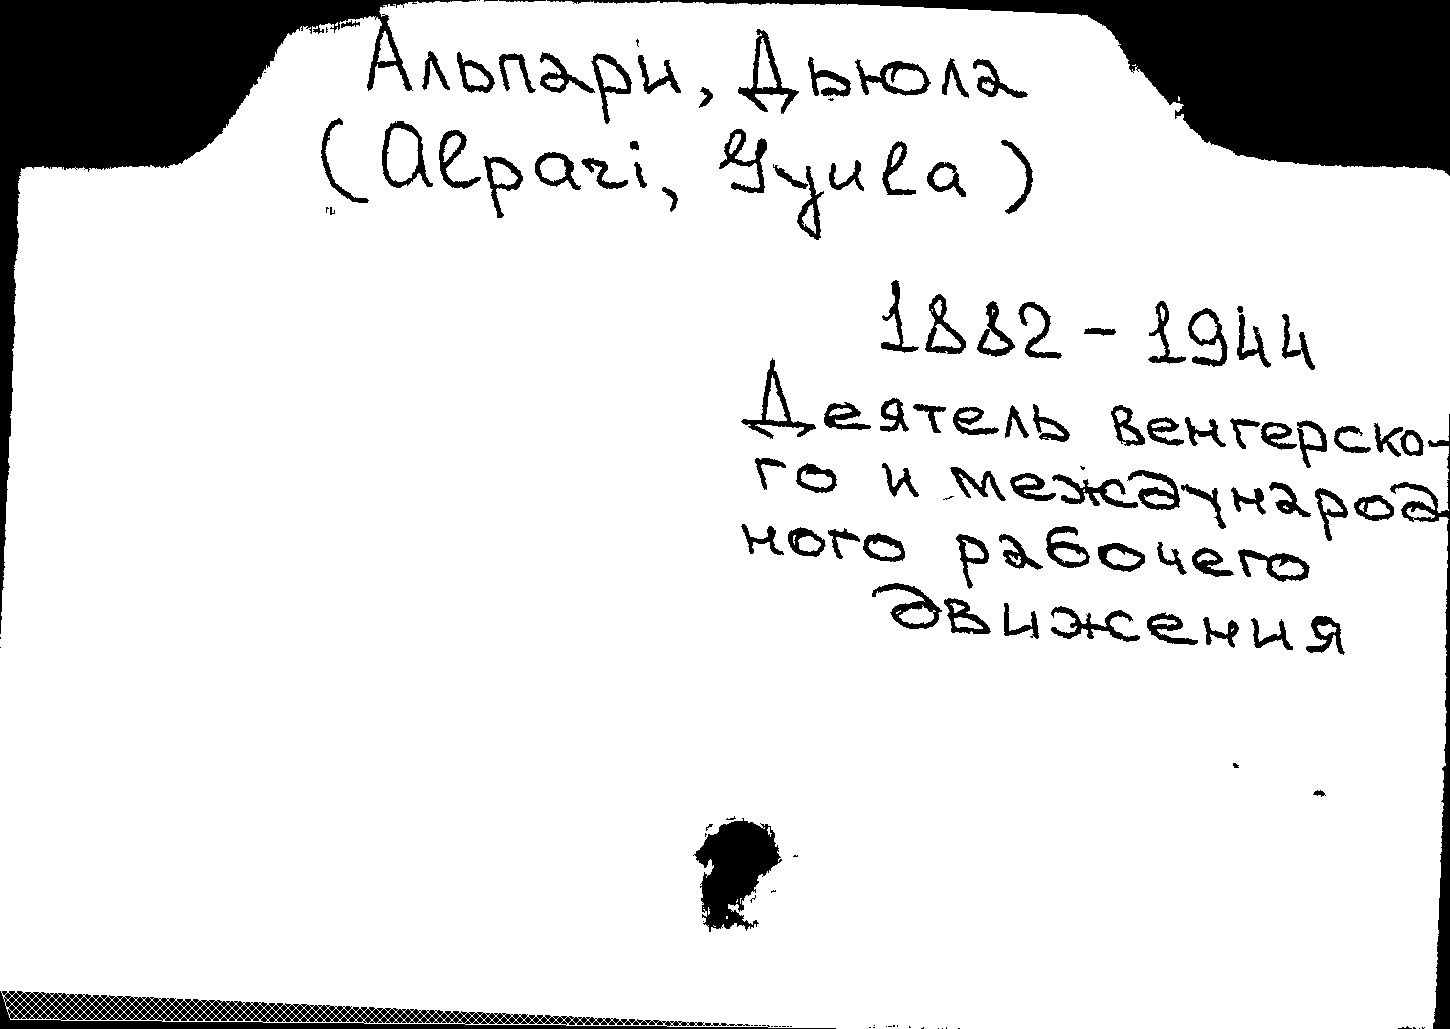 Альпари, Дьюла
(Alpari, Gyula)
1882-1944
Деятель венгерско-
го и международ-
ного рабочего
движения